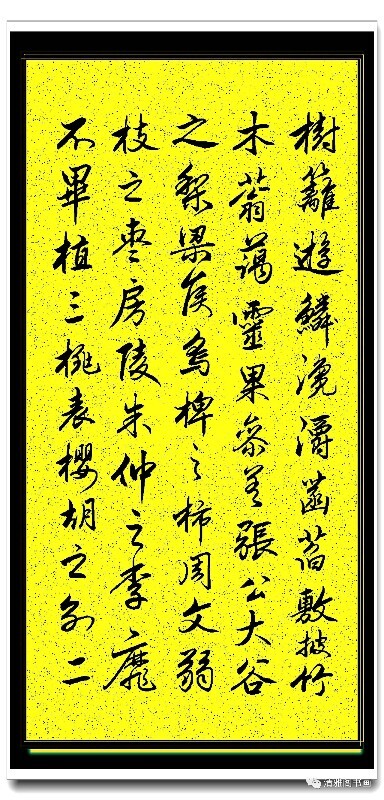 樹籬遊鱗瀺灂菡萏敷披竹
木蓊藹靈果參差張公大谷
之梨梁侯烏椑之柿周文弱
枝之棗房陵朱仲之李靡
不畢植三桃表櫻胡之別二
清雅图书画